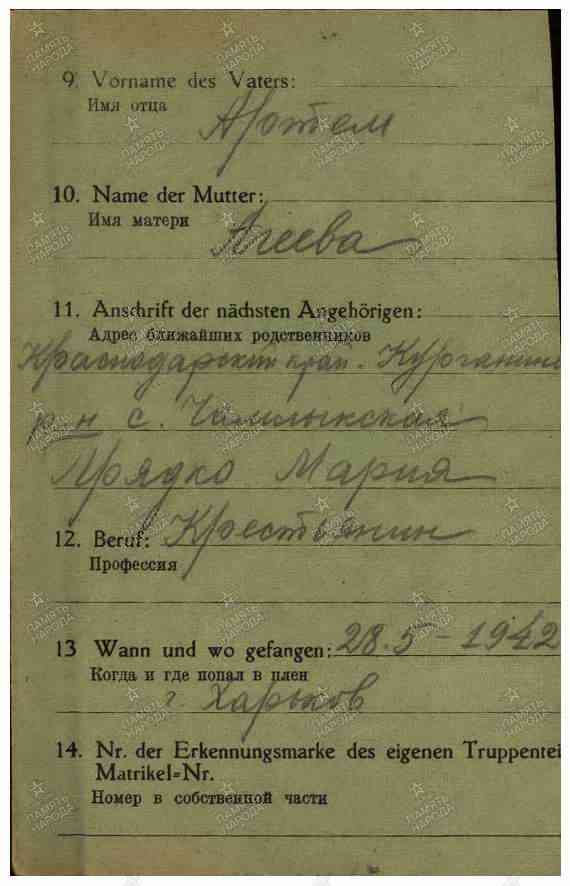 9. Vorname des Vaters:
Имя отца
Артем
10. Name der Mutter:
Имя матери
Агеева
11. Anschrift der nächsten Angehörigen:
Адрес ближайших родственников
Краснодарский край. Курганинс
р-н с. Чамлыкская
Прядко Мария
12. Beruf: Крестьянин
Профессия
13 Wann und wo gefangen: 28.5 - 1942
Когда и где попал в плен
г Харьков
14. Nr. der Erkennungsmarke des eigenen Truppentei
Matrikel=Nr.
Номер в собственной части
ПАМЯТЬ НАРОДА